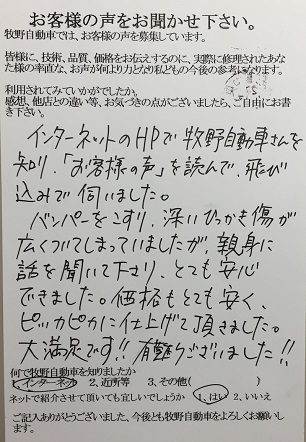 お客様の声をお聞かせ下さい。
牧野自動車では、お客様の声を募集しています。
皆様に、技術、品質、価格をお伝えするのに、実際に修理されたあな
た様の率直な、お声が何より力となり私どもの今後の参考になります。
利用されてみていかがでしたか。
感想、他店との違い等、お気づきの点がございましたら、ご自由にお書
き下さい。
インターネットのHPで牧野自動車さんを
知り、「お客様の声」を読んで、飛び
込みで伺いました。
バンパーをこすり、深いひっかき傷が
広くついてしまっていましたが、親身に
話を聞いて下さり、とても安心
できました。価格もとても安く、
ピッカピカに仕上げて頂きました。
大満足です!! 有難うございました!!
何で牧野自動車を知りましたか
1、インターネット 2、近所等 3、その他( )
ネットで紹介させて頂いても宜しいでしょうか 1、はい 2、いいえ
ご記入ありがとうございました、今後とも牧野自動車をよろしくお願いし
ます。